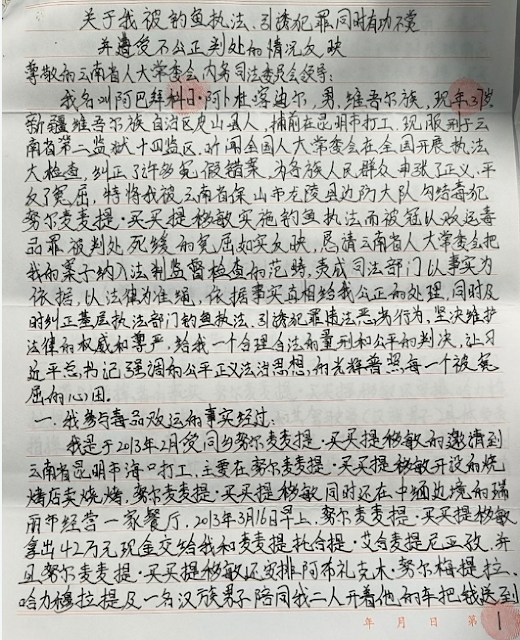 关于我被钓鱼执法、引诱犯罪同时有功不赏
并遭受不公正判处的情况反映
尊敬的云南省人大常委会内务司法委员会领导：
我名叫阿巴拜科日·阿卜杜喀迪尔，男，维吾尔族，现年37岁
新疆维吾尔族自治区皮山县人，捕前在昆明市打工，现服刑于云
南省第二监狱十四监区，昨闻全国人大常委会在全国开展执法
大检查，纠正了许多冤假错案，为各族人民群众申张了正义，平
反了冤屈，特将我被云南省保山市龙陵县边防大队勾结毒犯
努尔麦麦提·买买提移敏实施钓鱼执法而被冠以贩运毒
品罪被判处死缓的冤屈如实反映，恳请云南省人大常委会把
我的案子纳入法制监督检查的范畴，责成司法部门以事实为
依据，以法律为准绳，依据事实真相给我公正的处理，同时及
时纠正基层执法部门钓鱼执法、引诱犯罪违法恶劣行为，坚决维护
法律的权威和尊严，给我一个合理合法的量刑和公平的判决，让习
近平总书记强调的公平正义法治思想的光辉普照每一个被冤
屈的心田。
一、我参与毒品贩运的事实经过：
我是于2013年2月受同乡努尔麦麦提·买买提移敏的邀请到
云南省昆明市海口打工，主要在努尔麦麦提·买买提移敏开设的烧
烤店卖烧烤，努尔麦麦提·买买提移敏同时还在中缅边境的瑞
丽市经营一家餐厅，2013年3月16日早上，努尔麦麦提·买买提移敏
拿出42万元现金交给我和麦麦提托合提·艾合麦提尼亚孜，并
且努尔麦麦提·买买提移敏还安排阿布礼克木·努尔梅提拉、
哈力穆拉提及一名汉族男子陪同我二人开着他的车把我送到
年 月 日 第 1